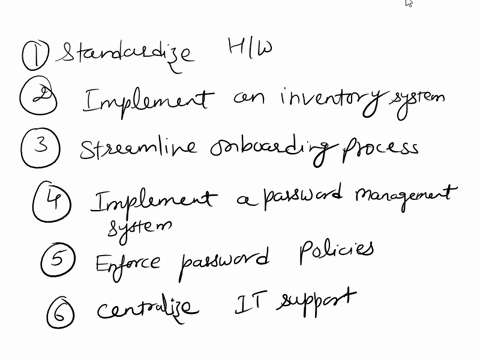 1 Standardize H/W
2 Implement an inventory system
3 Streamline onboarding process
4 Implement a password management
system
5 Enforce password Policies
6 Centralize IT support